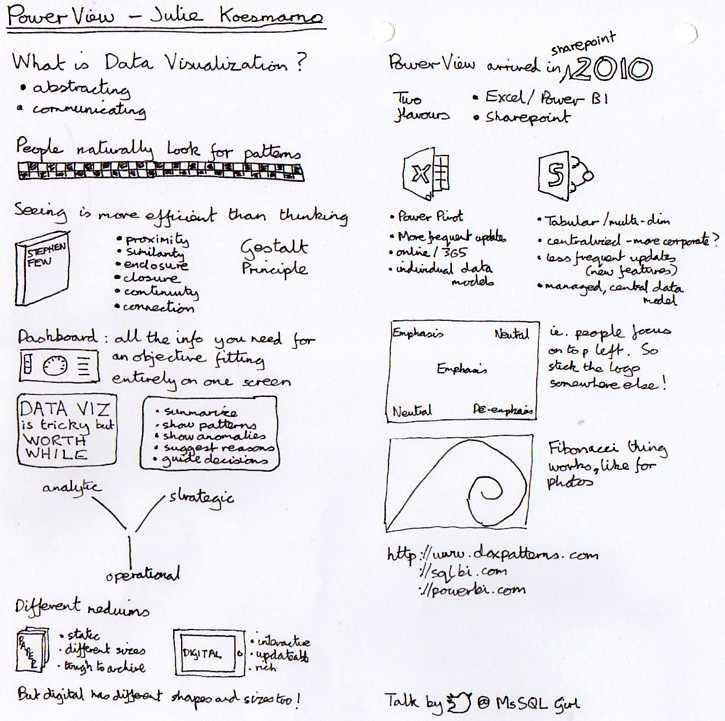 Power View - Julie Koesmarno
What is Data Visualization?
• abstracting
• communicating
People naturally look for patterns
Seeing is more efficient than thinking
STEPHEN
FEW
• proximity
• similarity
• enclosure
• closure
• continuity
• connection
Gestalt
Principle
Dashboard: all the info you need for
an objective fitting
entirely on one screen
DATA VIZ
is tricky but
WORTH
WHILE
• summarize
• show patterns
• show anomalies
• suggest reasons
• guide decisions
analytic
strategic
operational
Different mediums
PAPER
• static
• different sizes
• tough to archive
DIGITAL
• interactive
• updateable
• rich
But digital has different shapes and sizes too!
Power View arrived in sharepoint 2010
Two
flavours
• Excel/Power BI
• Sharepoint
X
• Power Pivot
• More frequent updates
• online/365
• individual data
models
S
• Tabular/multi-dim
• centralized - more corporate?
• less frequent updates
(new features)
• managed, central data
model
Emphasis
Neutral
Emphasis
Neutral
DE-emphasis
ie. people focus
on top left. So
stick the logo
somewhere else!
Fibonacci thing
works, like for
photos
http://www.daxpatterns.com
://sqlbi.com
://powerbi.com
Talk by @ MsSQL Girl